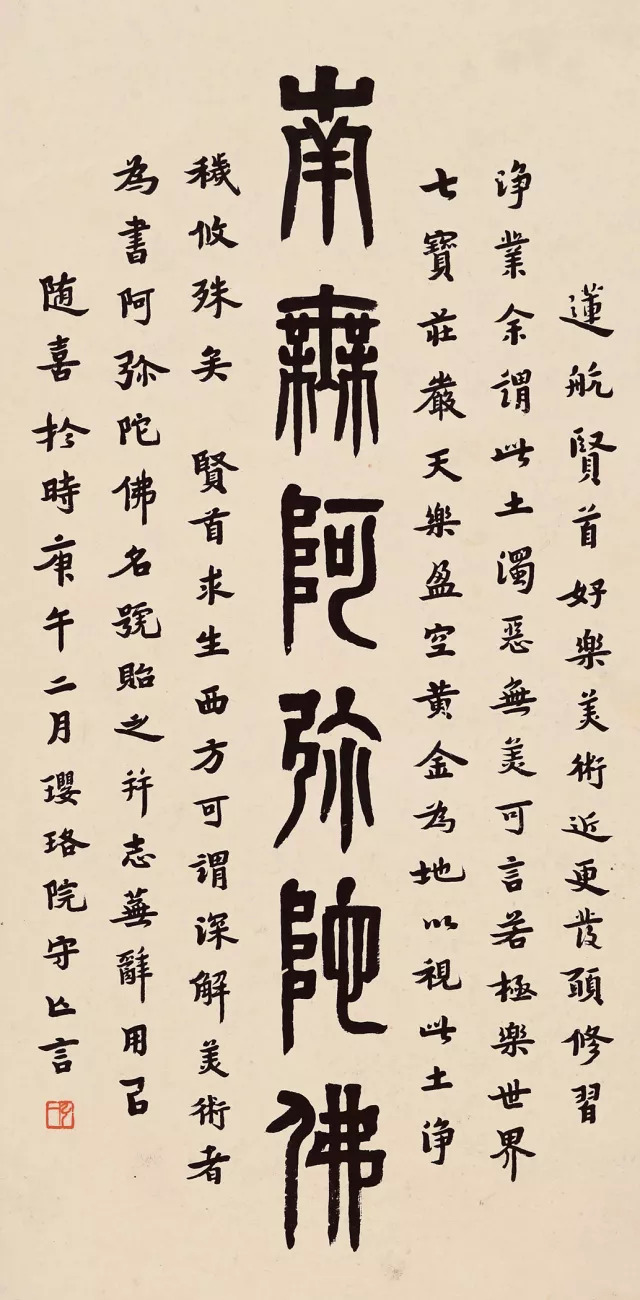 蓮航賢首好樂美術近更發願修習
淨業余謂此土濁惡無美可言若極樂世界
七寶莊嚴天樂盈空黃金為地以視此土淨
南無阿弥陀佛
穢攸殊矣 賢首求生西方可謂深解美術者
為書阿弥陀佛名號貽之并志蕪辭用呂
随喜於時庚午二月瓔珞院守亾言